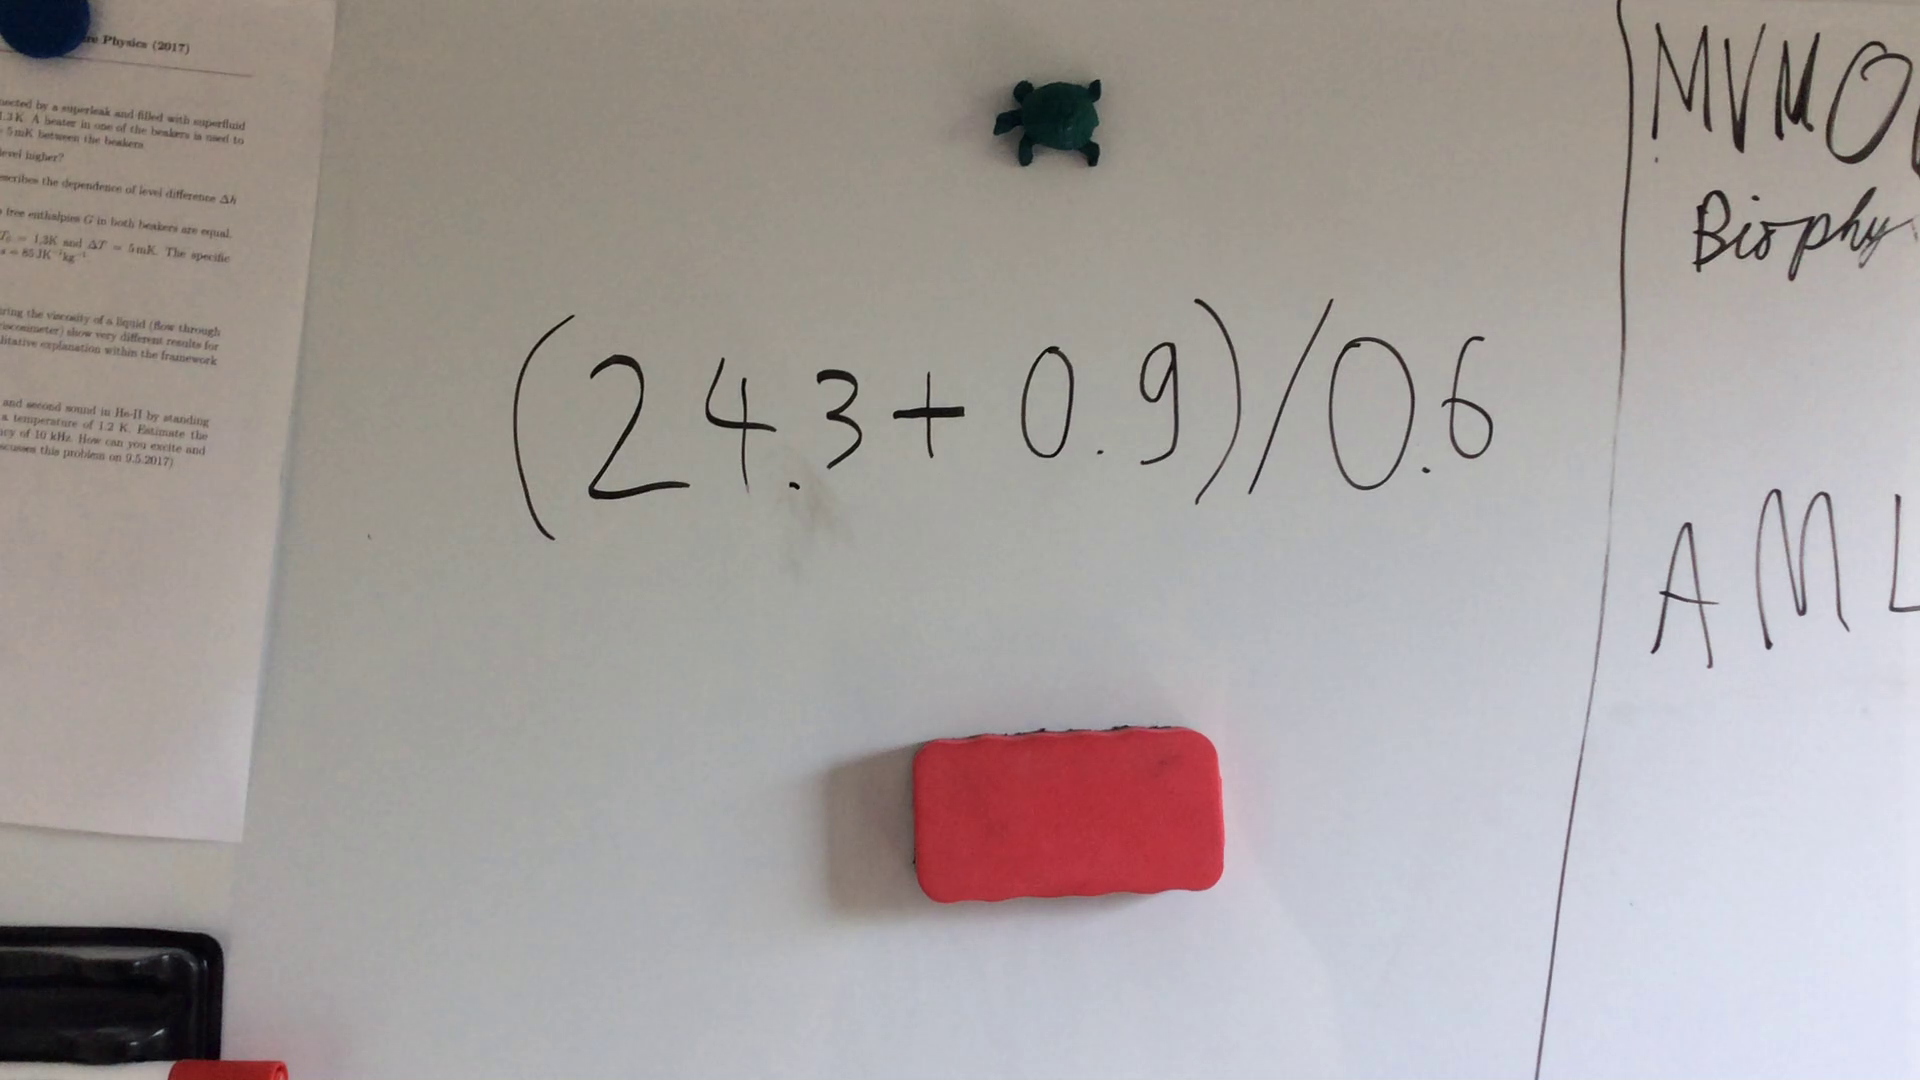 Physics (2017)
by a superleak and filled with superfluid
1.3K. A heater in one of the beakers is used to
5mK between the beakers.
level higher?
the dependence of level difference Δh
free enthalpies G in both beakers are equal.
T₀ = 1.3K and ΔT = 5mK. The specific
s = 85JK⁻¹kg⁻¹
the viscosity of a liquid (flow through
show very different results for
explanation within the framework
and second sound in He-II by standing
a temperature of 1.2 K. Estimate the
of 10 kHz. How can you excite and
this problem on 9.5.2017)
(24.3+0.9)/0.6
MVMO
Biophy
AML